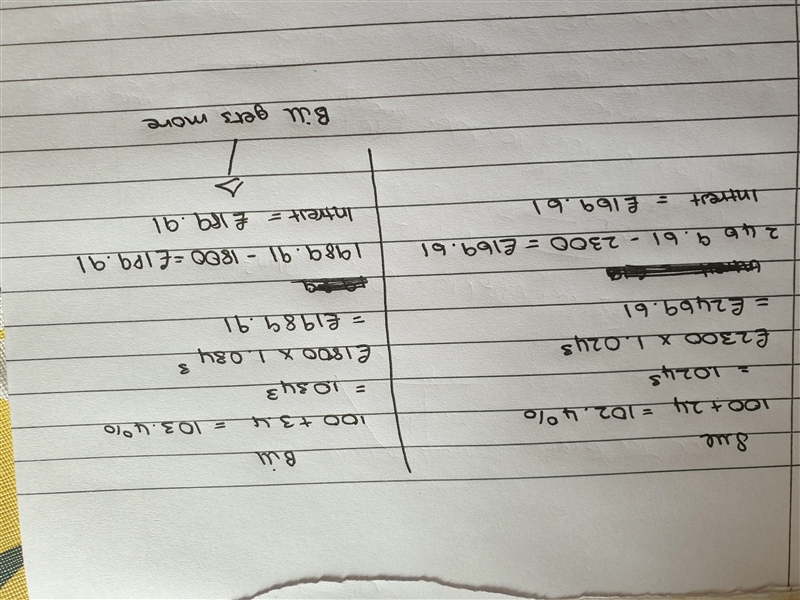 Sue
100 + 24 = 102.4%
= 1024³
£2300 × 1.024³
= £2469.61
2469.61 - 2300 = £169.61
Intrest = £169.61
Bill
100 + 3.4 = 103.4%
= 1034³
£1800 × 1.034³
= £1989.91
1989.91 - 1800 = £189.91
Intrest = £189.91
Bill gets more